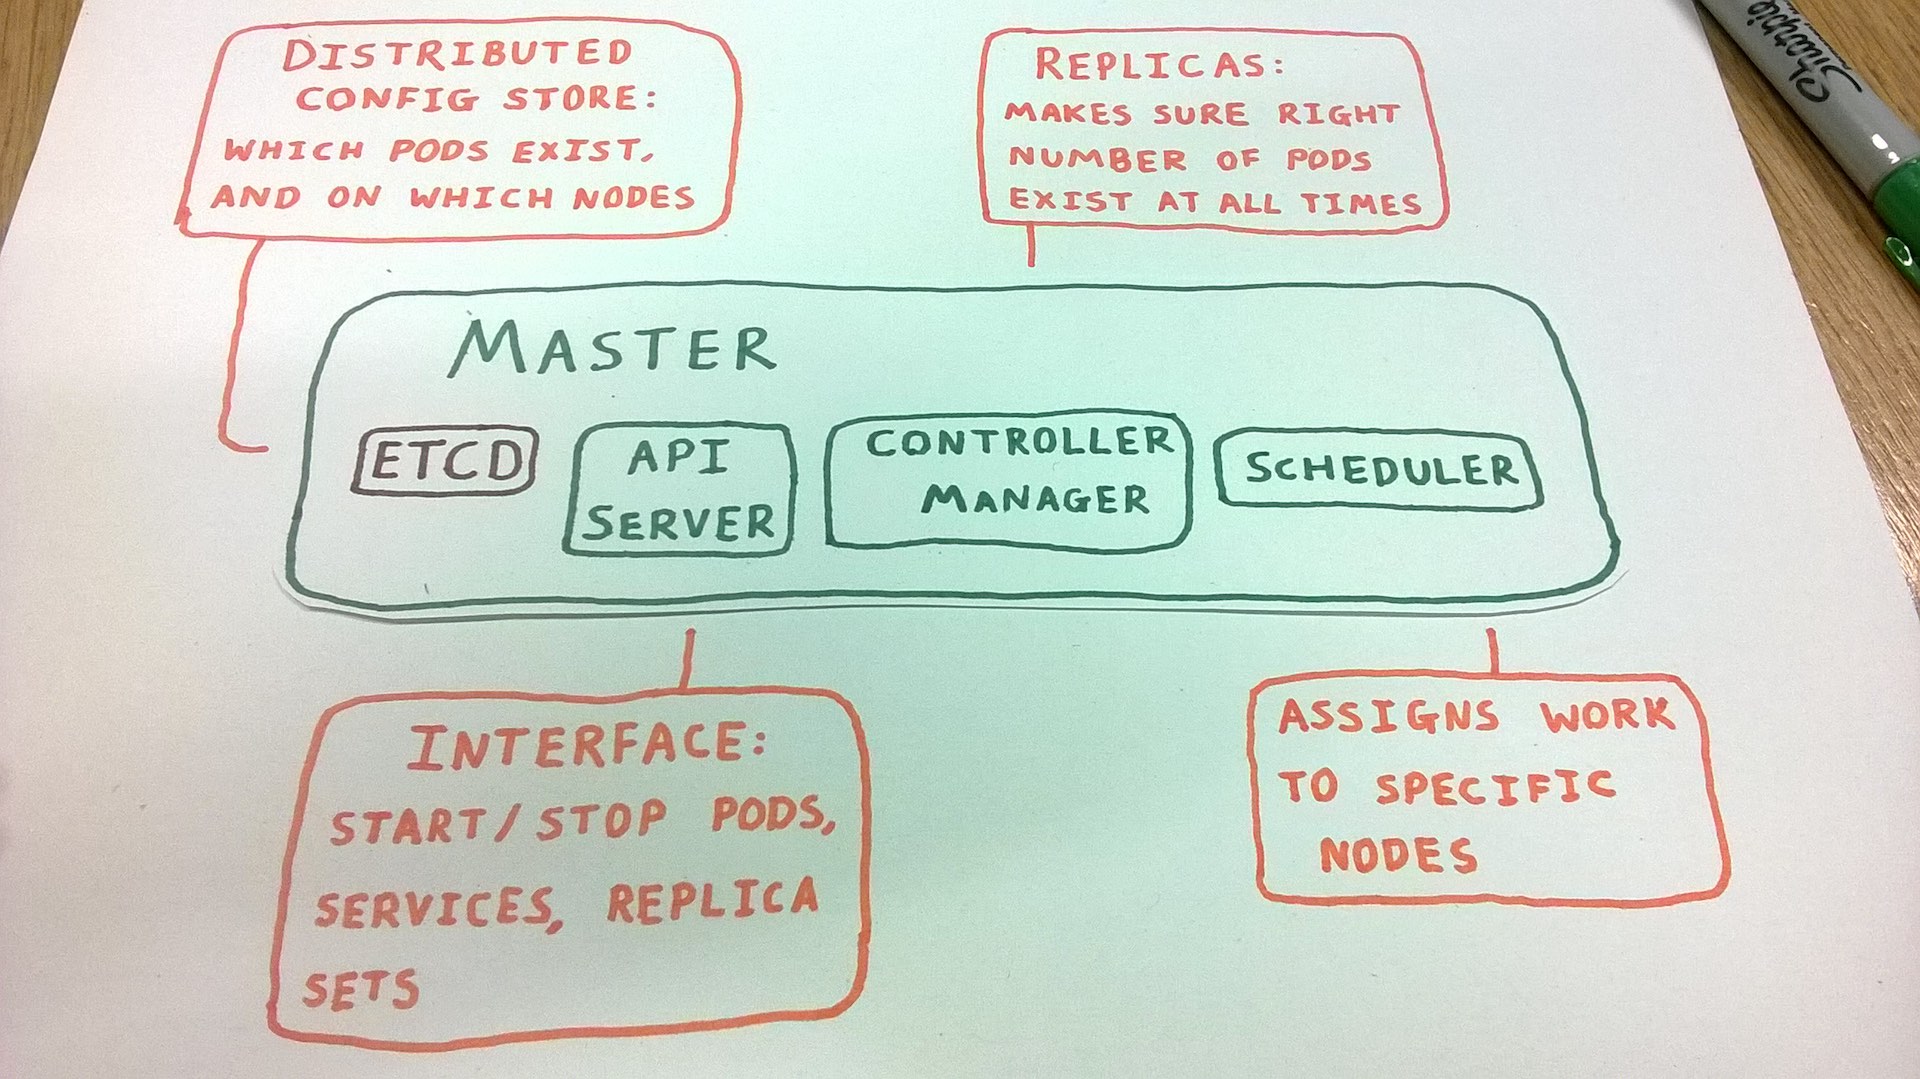 DISTRIBUTED
CONFIG STORE:
WHICH PODS EXIST,
AND ON WHICH NODES
REPLICAS:
MAKES SURE RIGHT
NUMBER OF PODS
EXIST AT ALL TIMES
Sharpie
MASTER
ETCD
API
SERVER
CONTROLLER
MANAGER
SCHEDULER
INTERFACE:
START/STOP PODS,
SERVICES, REPLICA
SETS
ASSIGNS WORK
TO SPECIFIC
NODES